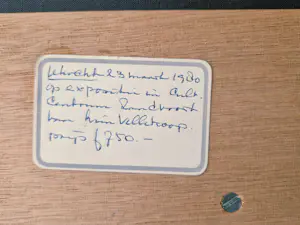 Utrecht 23 maart 1980
op expositie in Cult.
Centrum Zandvoort
van Wim Velleksoop.
prijs f 750.-